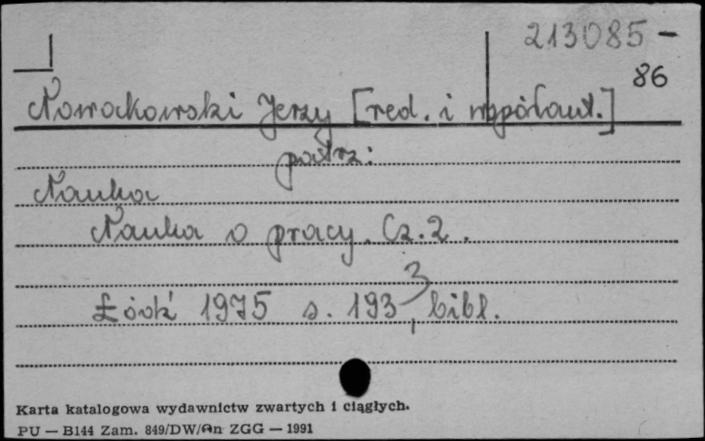 213085 —
86
Nowakowski Jerzy [red. i współaut.]
patrz:
Nauka
Nauka o pracy. Cz. 2.
Łódź 1975 s. 193, 3 bibl.
Karta katalogowa wydawnictw zwartych i ciągłych.
PU — B144 Zam. 849/DW/An ZGG — 1991